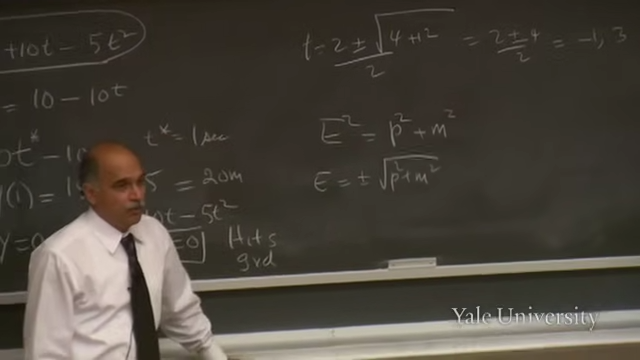 +10t - 5t²
= 10 - 10t
t* = 1 sec
y(1) = 1 5 = 20m
10t - 5t²
y = 0 = 0 Hits
grd
t = 2 ± √4 + 12 / 2 = 2 ± 4 / 2 = -1, 3
E² = p² + m²
E = ± √p² + m²
Yale University